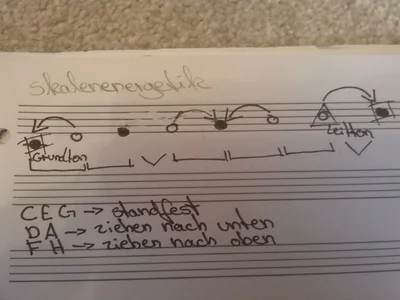 skalenenergetik
Grundton Leitton
CEG → standfest
DA → ziehen nach unten
FH → ziehen nach oben